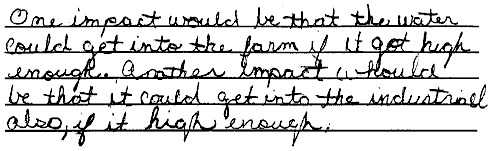 One impact would be that the water
could get into the farm if it got high
enough. Another impact whould
be that it could get into the industrial
also, if it high enough.